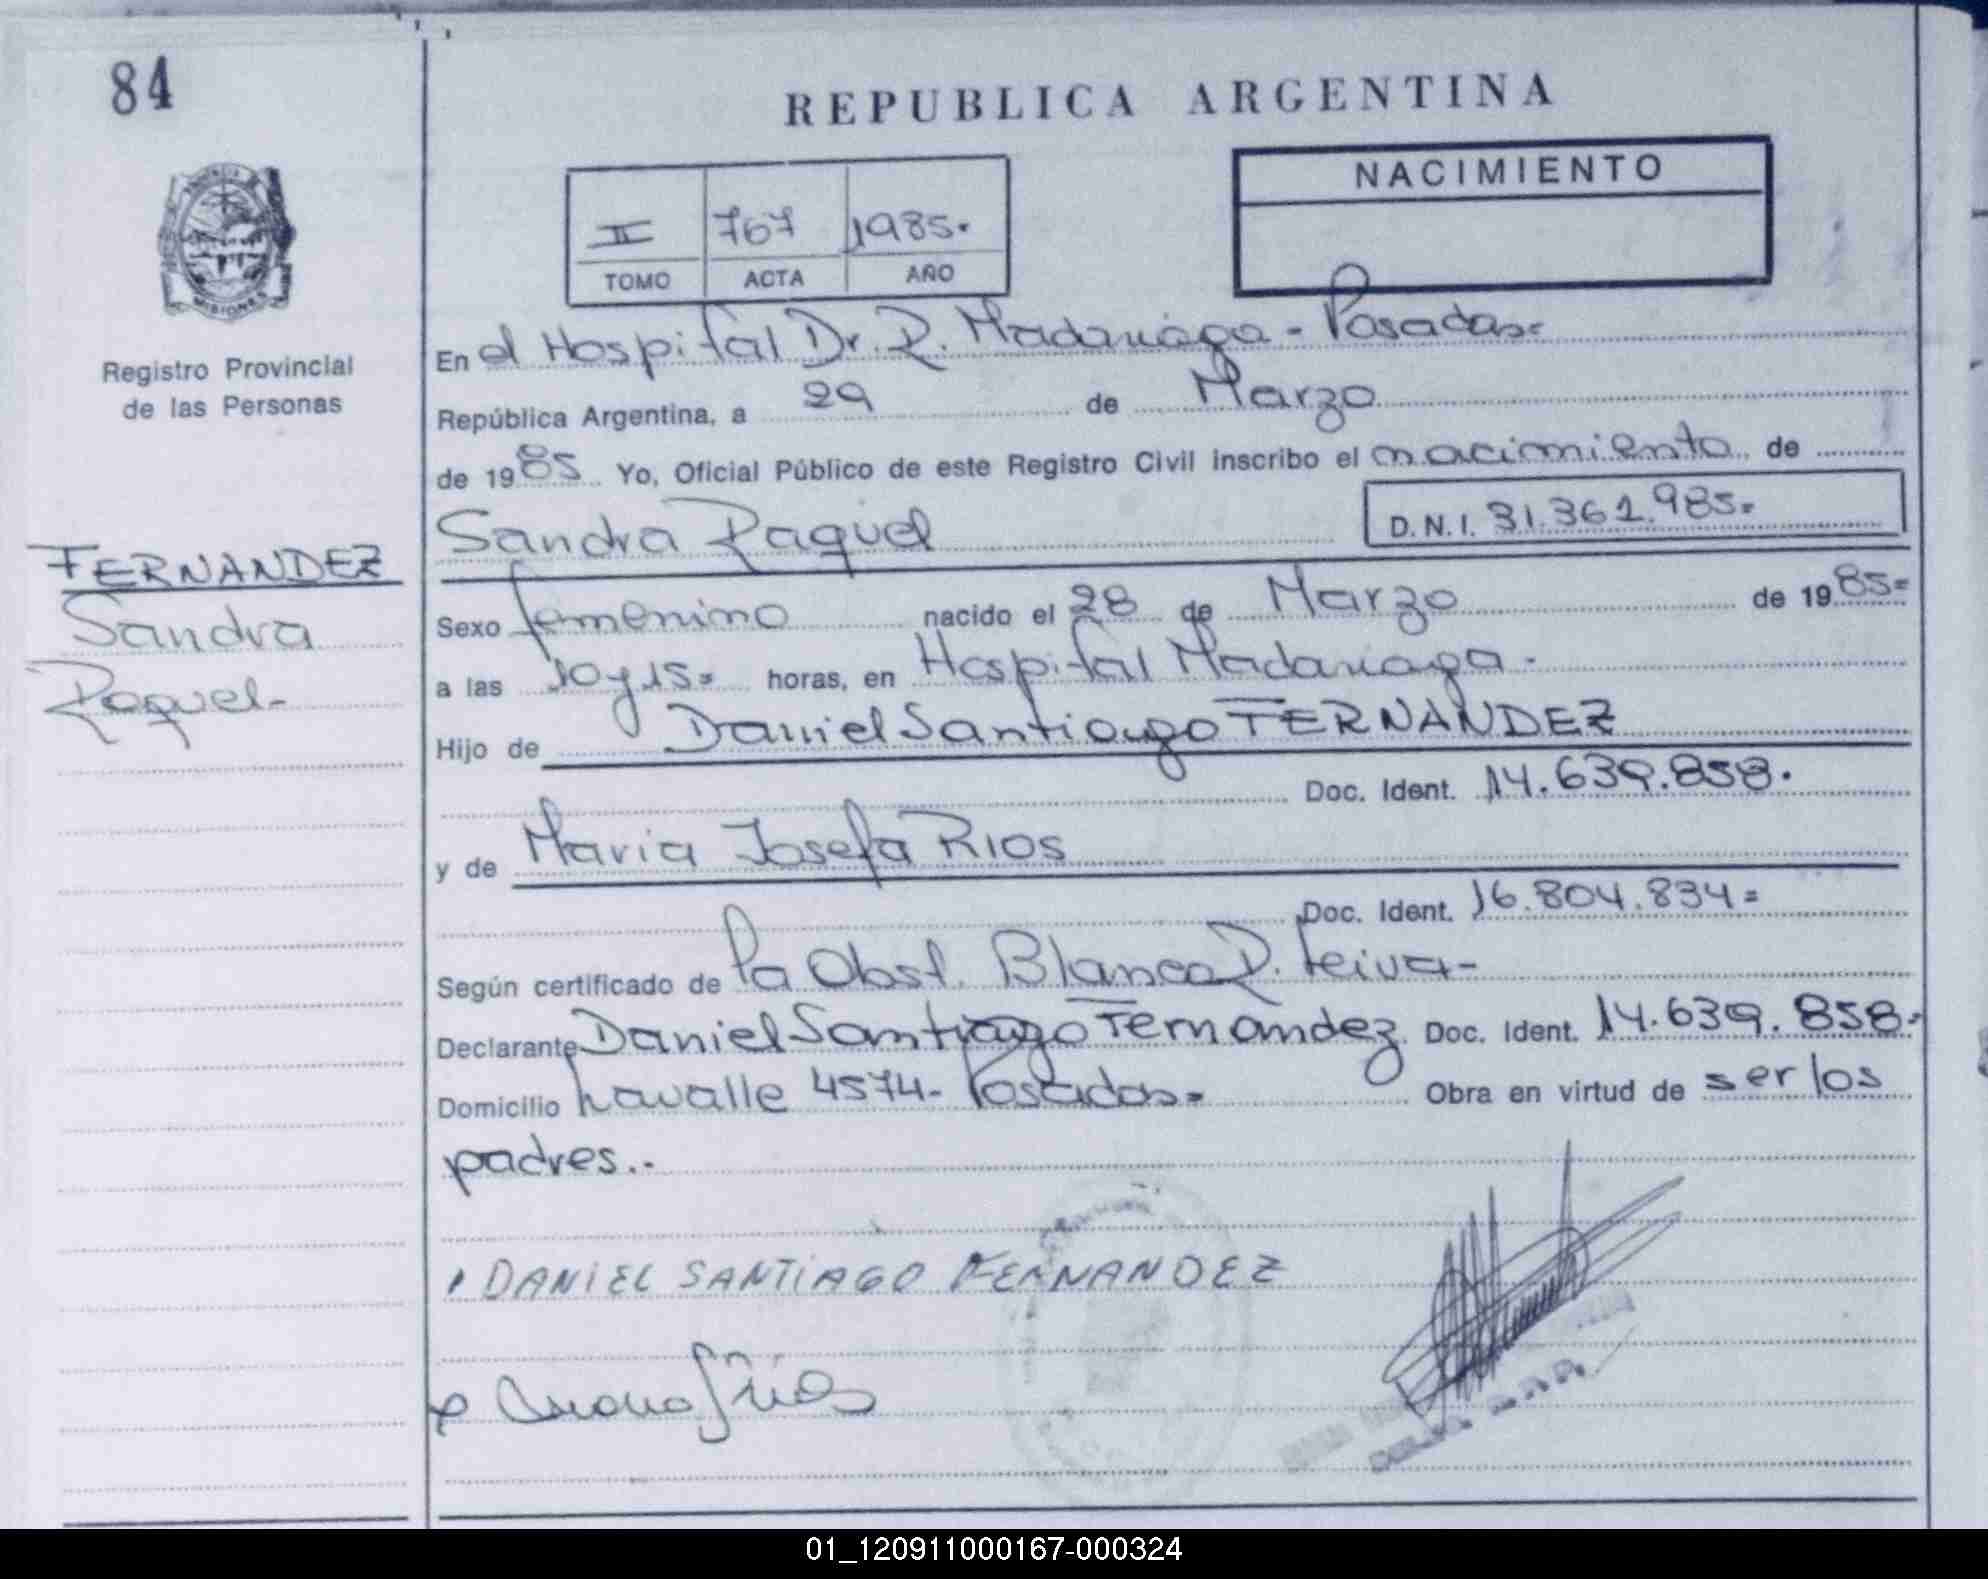 84
REPUBLICA ARGENTINA
NACIMIENTO
II 767 1985.
TOMO ACTA AÑO
MISIONES
Registro Provincial
de las Personas
FERNANDEZ
Sandra
Raquel-
En el Hospital Dr. R. Madariaga - Posadas=
República Argentina, a 29 de Marzo
de 1985 Yo, Oficial Público de este Registro Civil inscribo el nacimiento de
Sandra Raquel D.N.I. 31.361.985=
Sexo femenino nacido el 28 de Marzo de 1985=
a las 10 y 15= horas, en Hospital Madariaga-
Hijo de Daniel Santiago FERNANDEZ
Doc. Ident. 14.639.858.
y de Maria Josefa RIOS
Doc. Ident. 16.804.834=
Según certificado de la Obst. Blanca D. Leiva-
Declarante Daniel Santiago Fernandez Doc. Ident. 14.639.858.
Domicilio Lavalle 4574- Posadas= Obra en virtud de ser los
padres.-
DANIEL SANTIAGO FERNANDEZ
01_120911000167-000324